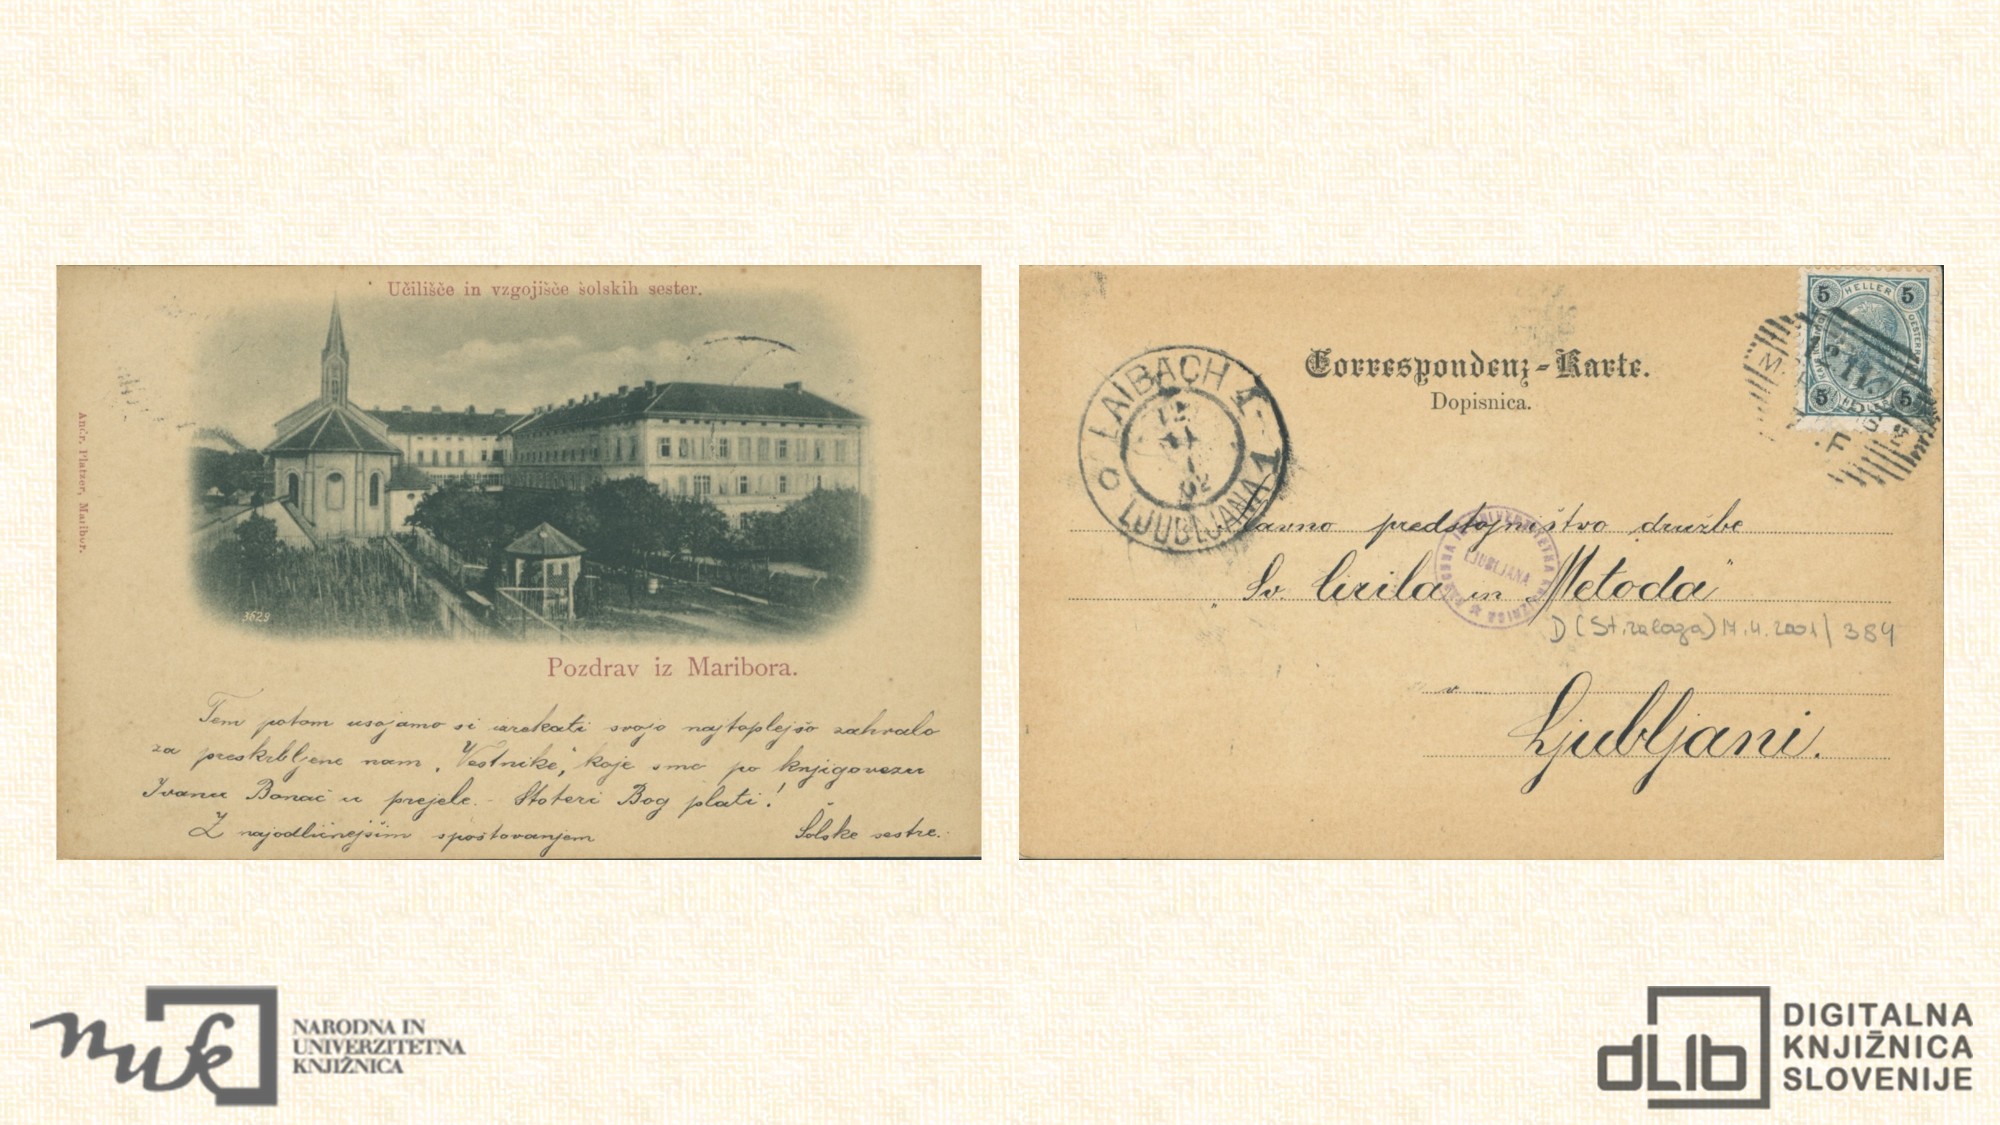 Učilišče in vzgojišče šolskih sester.
Andr. Platzer, Maribor.
3629
Pozdrav iz Maribora.
Tem potom usojamo si izrekati svojo najtoplejšo zahvalo
za preskrbljene nam „Vestnike", koje smo po knjigovezu
Ivanu Bonač u prejele. - Stoteri Bog plati!
Z najodličnejšim spoštovanjem Šolske sestre.
LAIBACH 1
12
XI
02
LJUBLJANA 1
Correspondenz-Karte.
Dopisnica.
5 HELLER 5
5 5
Slavno predstojništvo družbe
„Sv. Cirila in Metoda"
NARODNA IN UNIVERZITETNA KNJIŽNICA
LJUBLJANA
D (St. zaloga) 17.4.2001/384
v
Ljubljani.
nuk
NARODNA IN
UNIVERZITETNA
KNJIŽNICA
dLib
DIGITALNA
KNJIŽNICA
SLOVENIJE